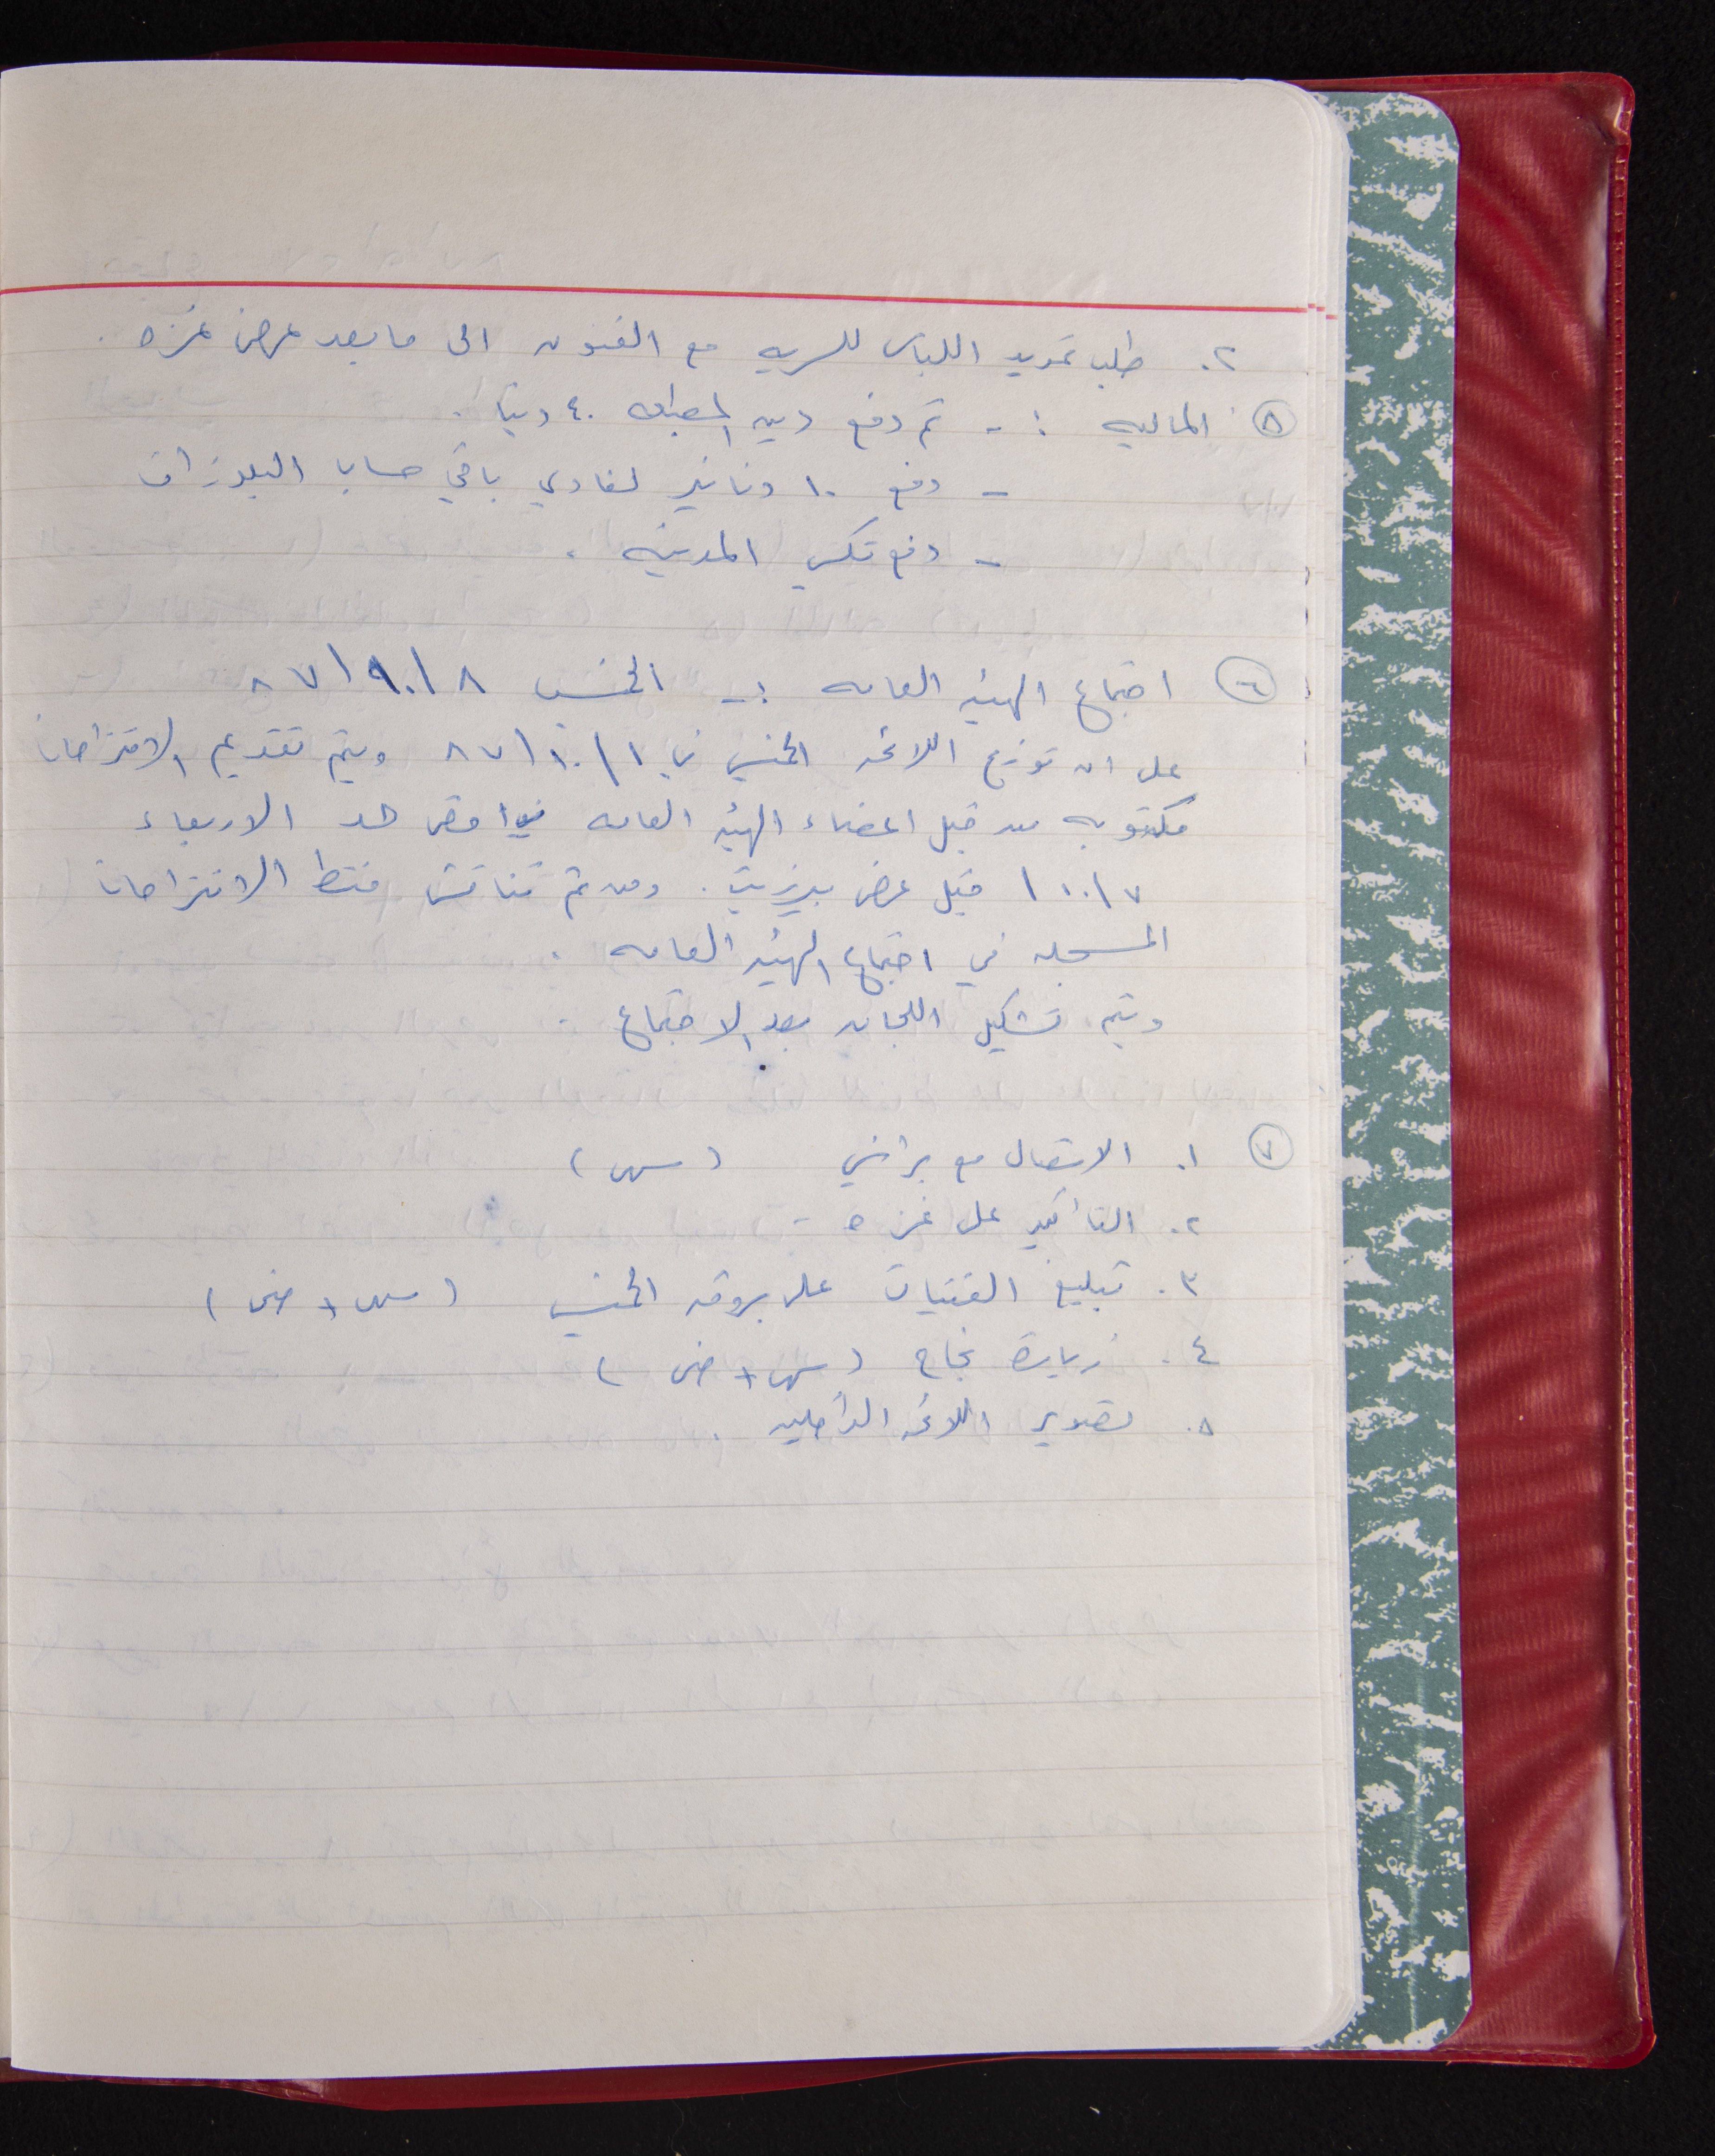 ٢. طلب تمديد اللباس للسريه مع الفنون الى ما بعد عرض غزه .
٥ المالية :- تم دفع دين المطبعه ٤٠ دينا .
- دفع ١٠ دنانير لفادي باقي حساب البلوزات
- دفع تكسي المدينه .
٦ اجتماع الهيئه العامه :- الخميس ٨ / ١٠ / ٨٧
على ان توزع اللائحه الخميس في ١ / ١٠ / ٨٧ ويتم تقديم الاقتراحات
مكتوبه من قبل اعضاء الهيئه العامه اقصى حد الاربعاء
٧ / ١٠ قبل عرض بيرزيت . ومن ثم تناقش فقط الاقتراحات
المسجله في اجتماع الهيئه العامه .
ويتم تشكيل اللجان بعد الاجتماع .
٧ ١. الاتصال مع براني ( سهى )
٢. التأكيد على غزه -
٣. تبليغ الفتيات على بروفه الخميس ( سهى + ضحى )
٤. زيارة نجاح ( سهى + ضحى )
٥. تصوير اللائحه الداخليه .